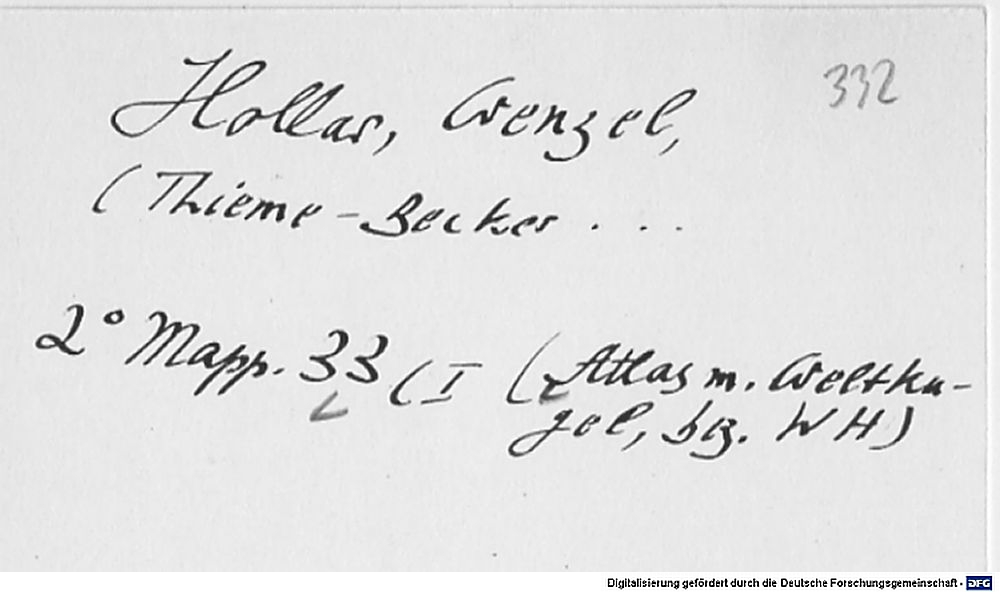 332
Hollar, Wenzel,
(Thieme-Becker . . .
2° Mapp. 33 (I (Atlas m. Weltku-
gel, bz. WH)
Digitalisierung gefördert durch die Deutsche Forschungsgemeinschaft - DFG